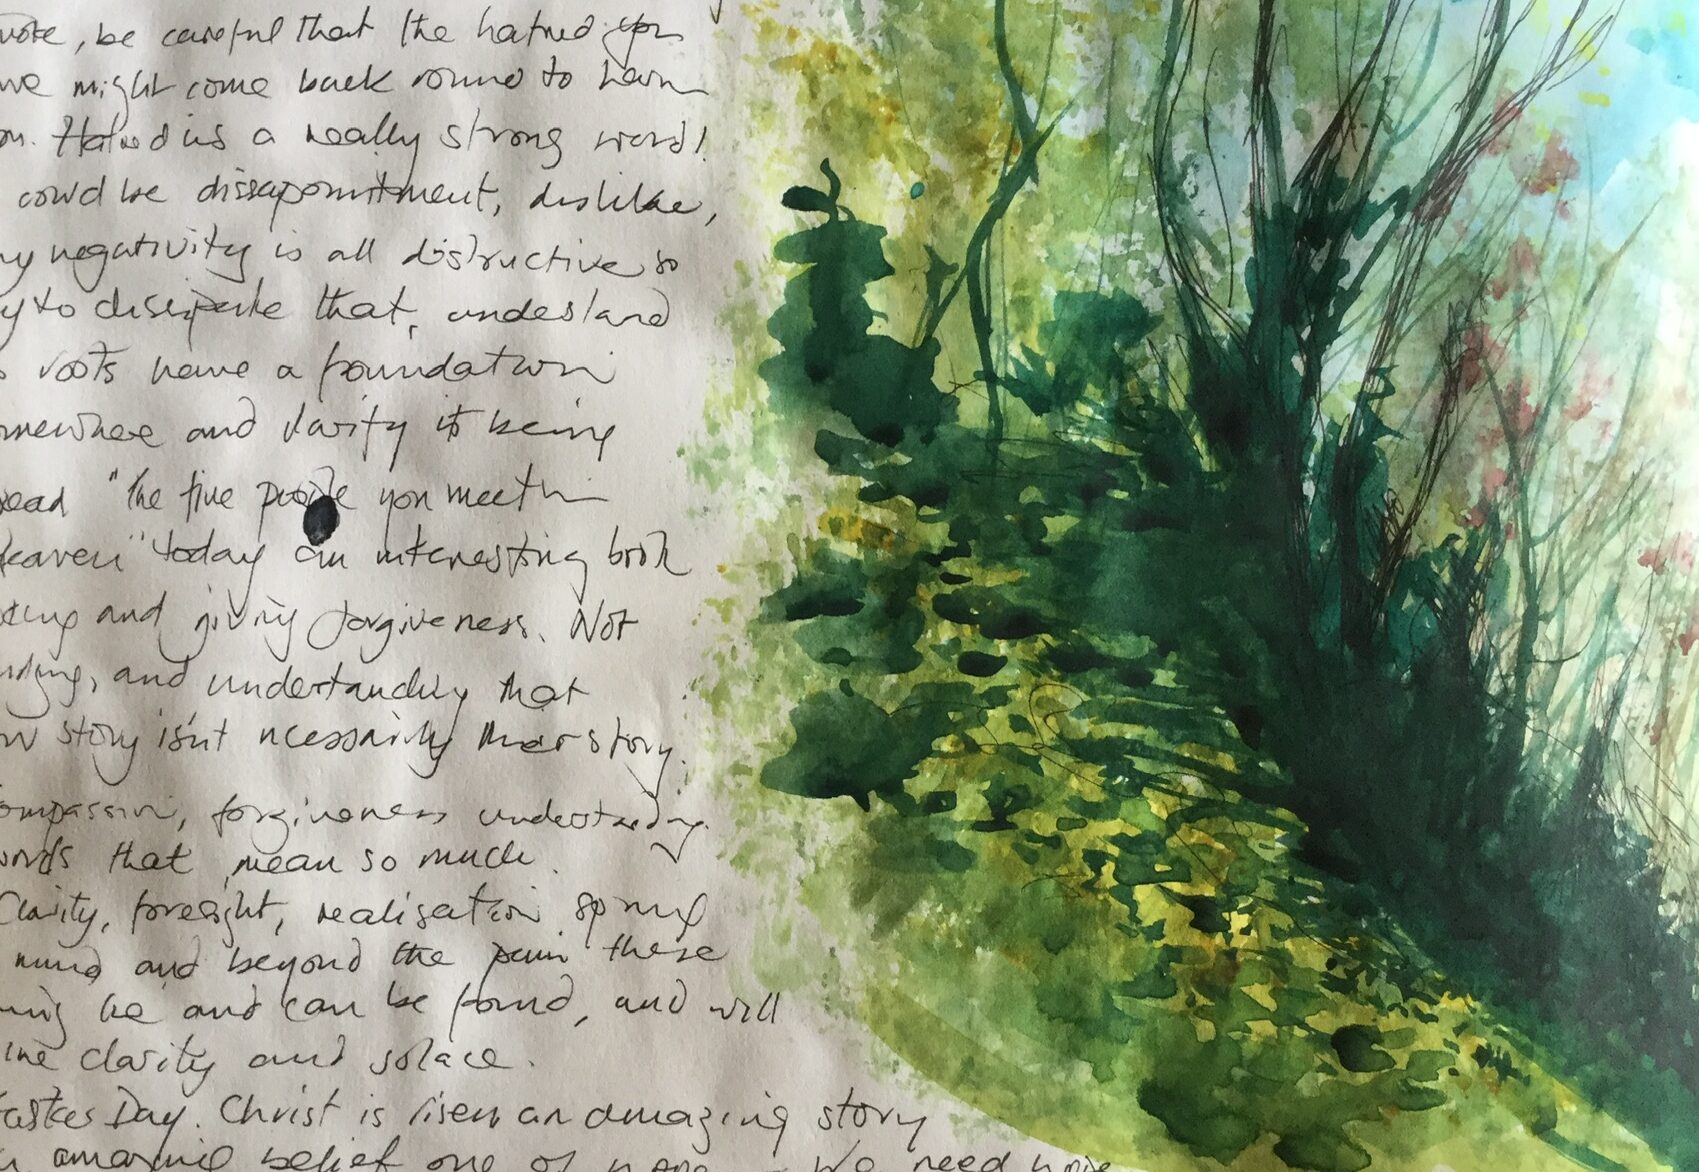 be careful that the hatred you
might come back round to harm
Hatred is a really strong word!
could be dissapointment, dislike,
negativity is all distructive so
to that, understand
roots have a foundation
and clarity is being
"the five people you meet in
heaven" today an interesting book
and giving forgiveness. Not
and understanding that
story isn't ncessarily their story.
compassion, forgiveness understanding.
words that mean so much.
Clarity, foresight, realisation spring
mind and beyond the pain these
be and can be found, and will
clarity and solace.
Easter Day. Christ is risen an amazing story
amazing belief one of We need